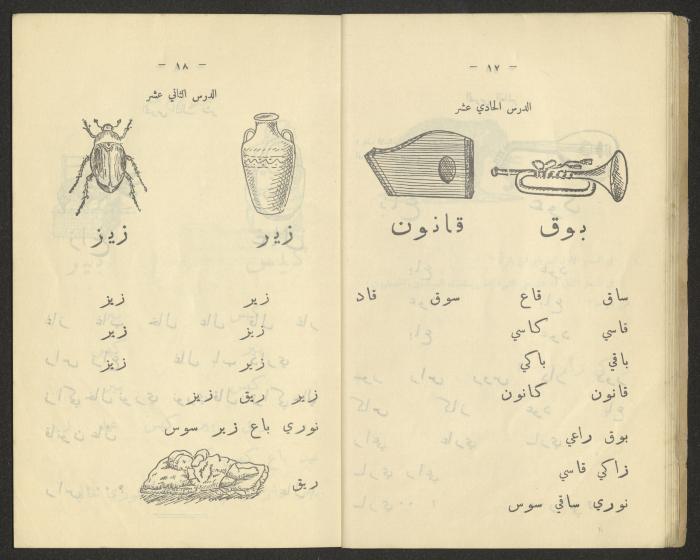 - ١٧ -
الدرس الحادي عشر
بوق قانون
ساق قاع سوق قاد
قاسي كاسي
باقي باكي
قانون كانون
بوق راعي
زاكي قاسي
نوري ساقي سوس
- ١٨ -
الدرس الثاني عشر
زير زيز
زير زيز
زيز زير
زير زيز
زير ريق زيز
نوري باع زير سوس
ريق